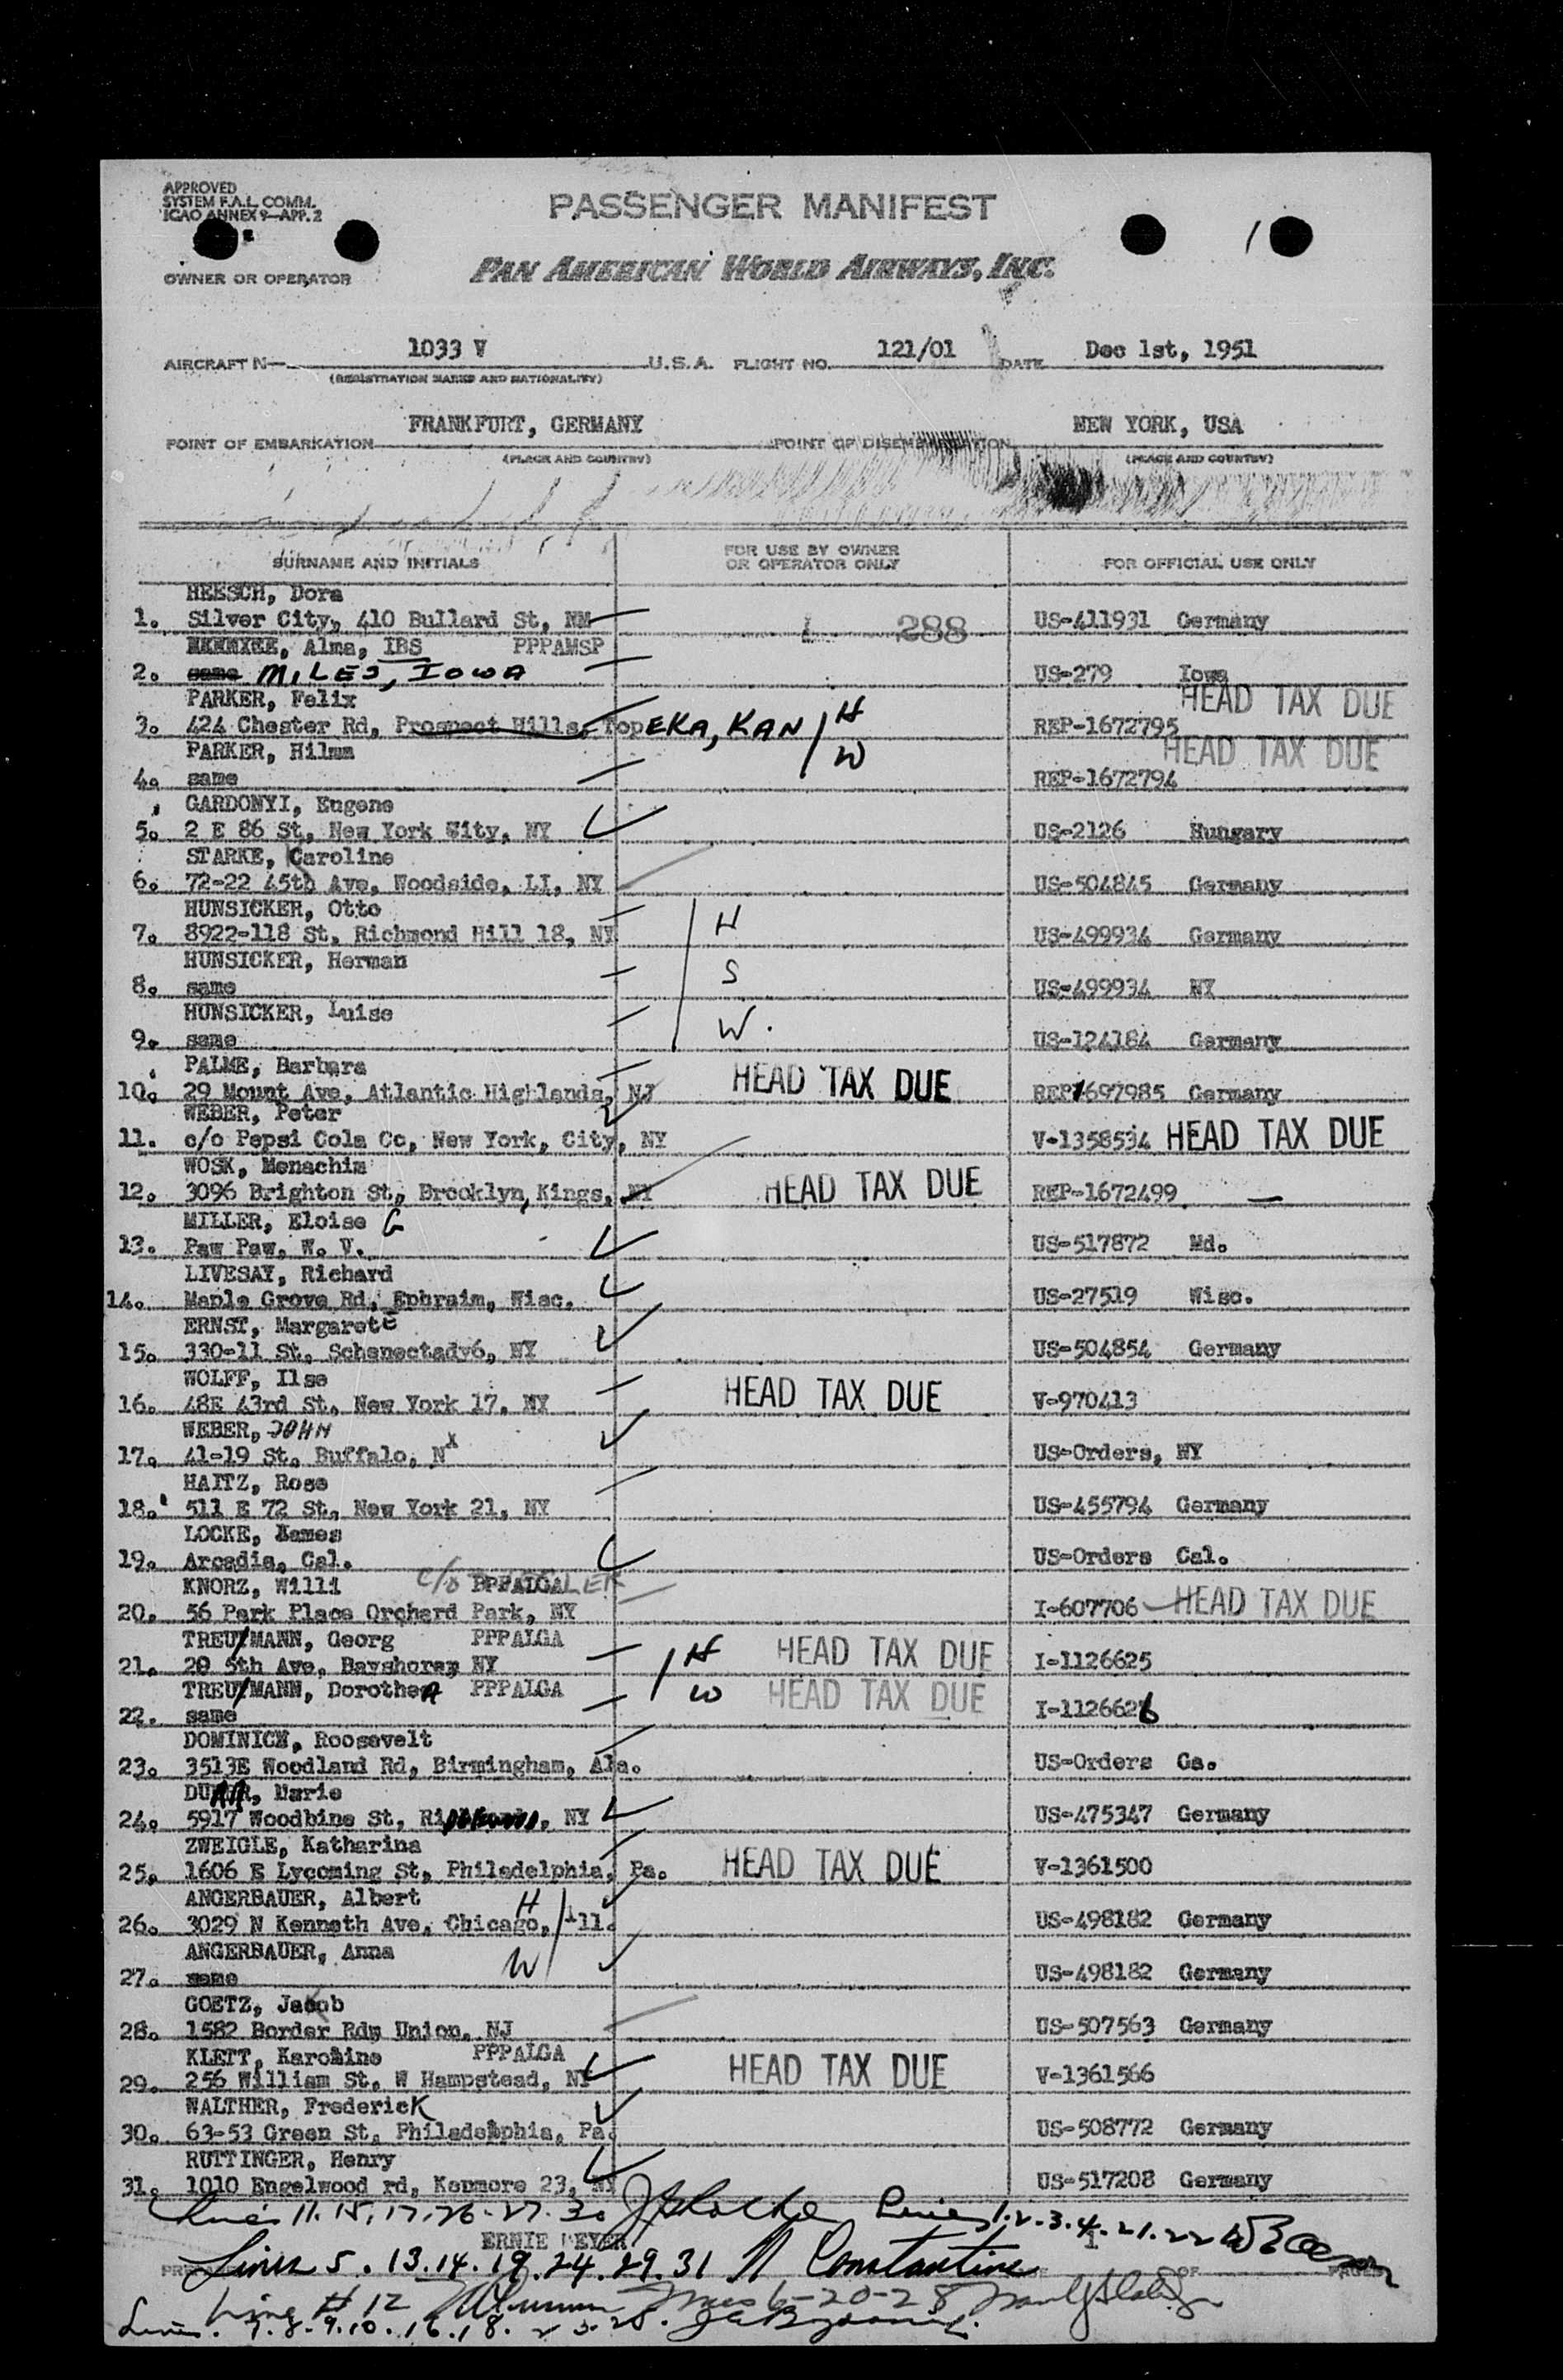 APPROVED
SYSTEM F.A.L. COMM.
ICAO ANNEX 9—APP. 2
PASSENGER MANIFEST
1
OWNER OR OPERATOR
PAN AMERICAN WORLD AIRWAYS, INC.
AIRCRAFT N— 1033 V U.S.A. FLIGHT NO. 121/01 DATE Dec 1st, 1951
(REGISTRATION MARKS AND NATIONALITY)
POINT OF EMBARKATION FRANKFURT, GERMANY POINT OF DISEMBARKATION NEW YORK, USA
(PLACE AND COUNTRY) (PLACE AND COUNTRY)
SURNAME AND INITIALS FOR USE BY OWNER OR OPERATOR ONLY FOR OFFICIAL USE ONLY
HEESCH, Dora
1. Silver City, 410 Bullard St, NM 1 288 US-411931 Germany
Alma, IBS PPPAMSP
2. same MILES, IOWA US-279 Iowa
PARKER, Felix HEAD TAX DUE
3. 424 Chester Rd, Prospect Hills, TopEKA, KAN H REP-1672795
PARKER, Hilma W HEAD TAX DUE
4. same REP-1672794
GARDONYI, Eugene
5. 2 E 86 St, New York City, NY US-2126 Hungary
STARKE, Caroline
6. 72-22 45th Ave, Woodside, LI, NY US-504845 Germany
HUNSICKER, Otto
7. 8922-118 St, Richmond Hill 18, NY H US-499934 Germany
HUNSICKER, Herman
8. same S US-499934 NY
HUNSICKER, Luise
9. same W. US-124184 Germany
PALME, Barbara
10. 29 Mount Ave, Atlantic Highlands, NJ HEAD TAX DUE REP1697985 Germany
WEBER, Peter
11. c/o Pepsi Cola Co, New York, City, NY V-1358534 HEAD TAX DUE
WOSK, Menachim
12. 3096 Brighton St, Brooklyn, Kings, NY HEAD TAX DUE REP-1672499
MILLER, Eloise G
13. Paw Paw, W. V. US-517872 Md.
LIVESAY, Richard
14. Maple Grove Rd, Ephraim, Wisc. US-27519 Wisc.
ERNST, Margarete
15. 330-11 St, Schenectady6, NY US-504854 Germany
WOLFF, Ilse
16. 48E 43rd St, New York 17, NY HEAD TAX DUE V-970413
WEBER, JOHN
17. 41-19 St, Buffalo, NY US-Orders, NY
HAITZ, Rose
18. 511 E 72 St, New York 21, NY US-455794 Germany
LOCKE, James
19. Arcadia, Cal. US-Orders Cal.
KNORZ, Willi c/o PPPALGA
20. 56 Park Place Orchard Park, NY I-607706 HEAD TAX DUE
TREUTMANN, Georg PPPALGA
21. 20 5th Ave, Bayshore, NY H HEAD TAX DUE I-1126625
TREUTMANN, DorotheA PPPALGA
22. same W HEAD TAX DUE I-1126626
DOMINICK, Roosevelt
23. 3513E Woodland Rd, Birmingham, Ala. US-Orders Ga.
Marie
24. 5917 Woodbine St, NY US-475347 Germany
ZWEIGLE, Katharina
25. 1606 E Lycoming St, Philadelphia, Pa. HEAD TAX DUE V-1361500
ANGERBAUER, Albert H
26. 3029 N Kenneth Ave, Chicago, Ill. US-498182 Germany
ANGERBAUER, Anna W
27. same US-498182 Germany
GOETZ, Jacob
28. 1582 Border Rd, Union, NJ US-507563 Germany
KLETT, Karoline PPPALGA
29. 256 William St, W Hampstead, NY HEAD TAX DUE V-1361566
WALTHER, FredericK
30. 63-53 Green St, Philadelphia, Pa. US-508772 Germany
RUTTINGER, Henry
31. 1010 Engelwood rd, Kenmore 23, NY US-517208 Germany
Lines 11.15.17.26.27.30 Lines 1.2.3.4.21.22
ERNIE 1
Lines 5.13.14.19.24.29.31 Constantine OF PAGES
Line #12 Lines 6-20-28
Lines. 7.8.9.10.16.18.